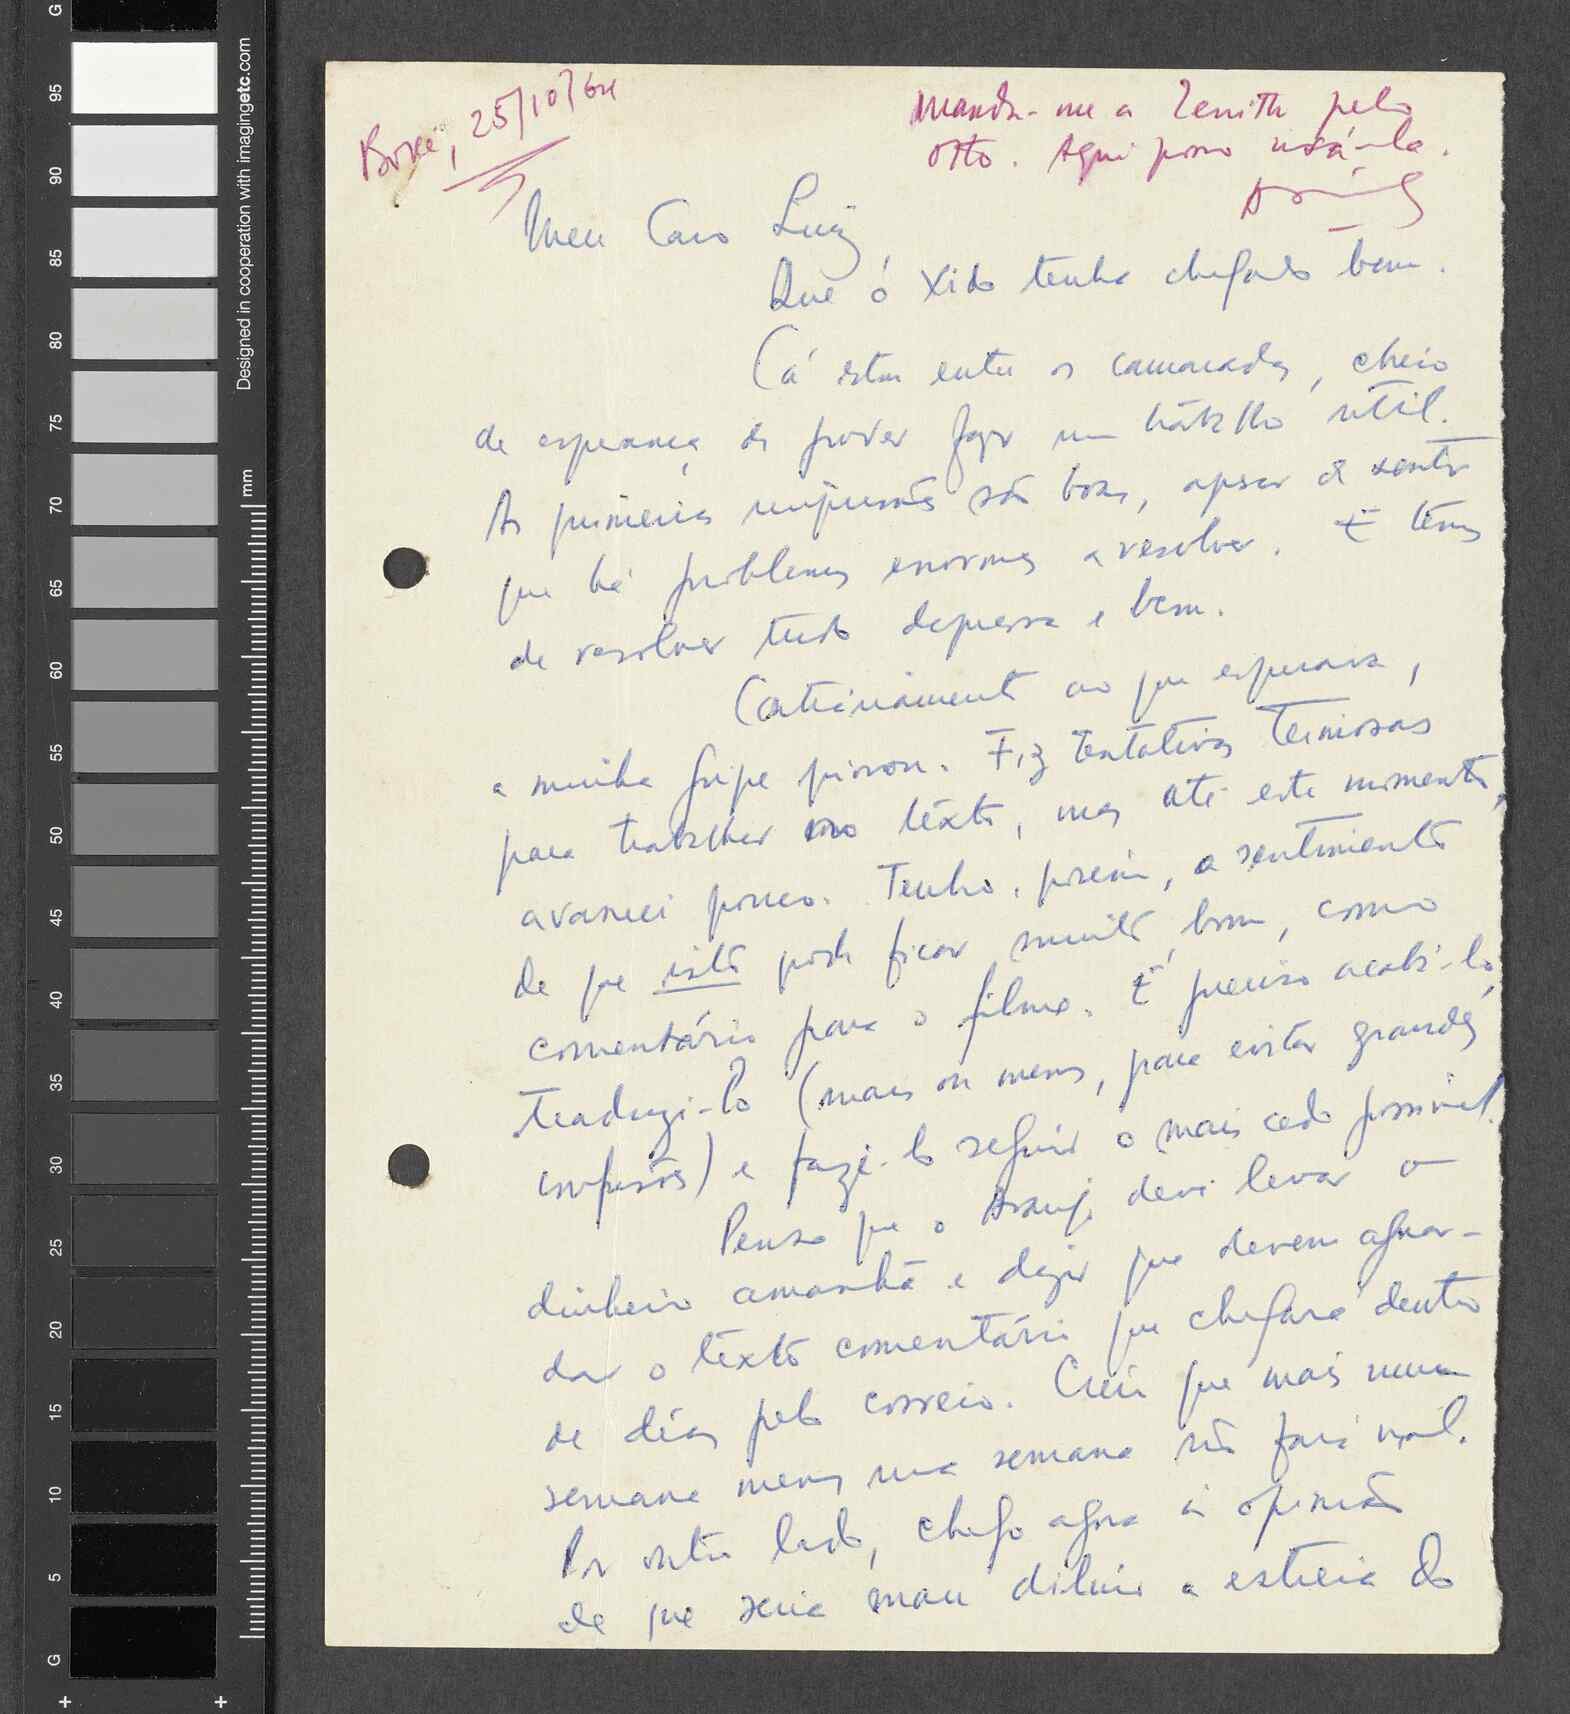 Boké, 25/10/64
Manda-me a Zenith pelo
Otto. Aqui posso usá-la.
Meu Caro Luiz,
Que ó Xido tenha chegado bem.
Cá estou entre os camaradas, cheio
de esperança de poder fazer um trabalho útil.
As primeiras impressões são boas, apesar de sentir
que há problemas enormes a resolver. E temos
de resolver tudo depressa e bem.
Contràriamente ao que esperava,
a minha gripe piorou. Fiz tentativas teimosas
para trabalhar no têxto, mas até este momento,
avancei pouco. Tenho, porém, o sentimento
de que isto pode ficar muito bom, como
comentário para o filme. É preciso acabá-lo,
traduzi-lo (mais ou menos, para evitar grandes
confusões) e fazê-lo seguir o mais cedo possível.
Penso que o Araujo deve levar o
dinheiro amanhã e dizer que devem aguar-
dar o têxto comentário que chegará dentro
de dias pelo correio. Creio que mais uma
semana menos uma semana não fará mal.
Por outro lado, chego agora à opinião
de que seria mau diluir a estreia do
G
95
90
85
80
75
70
65
60
55
50
45
40
35
30
25
20
15
10
5
G
mm
Designed in cooperation with imagingetc.com